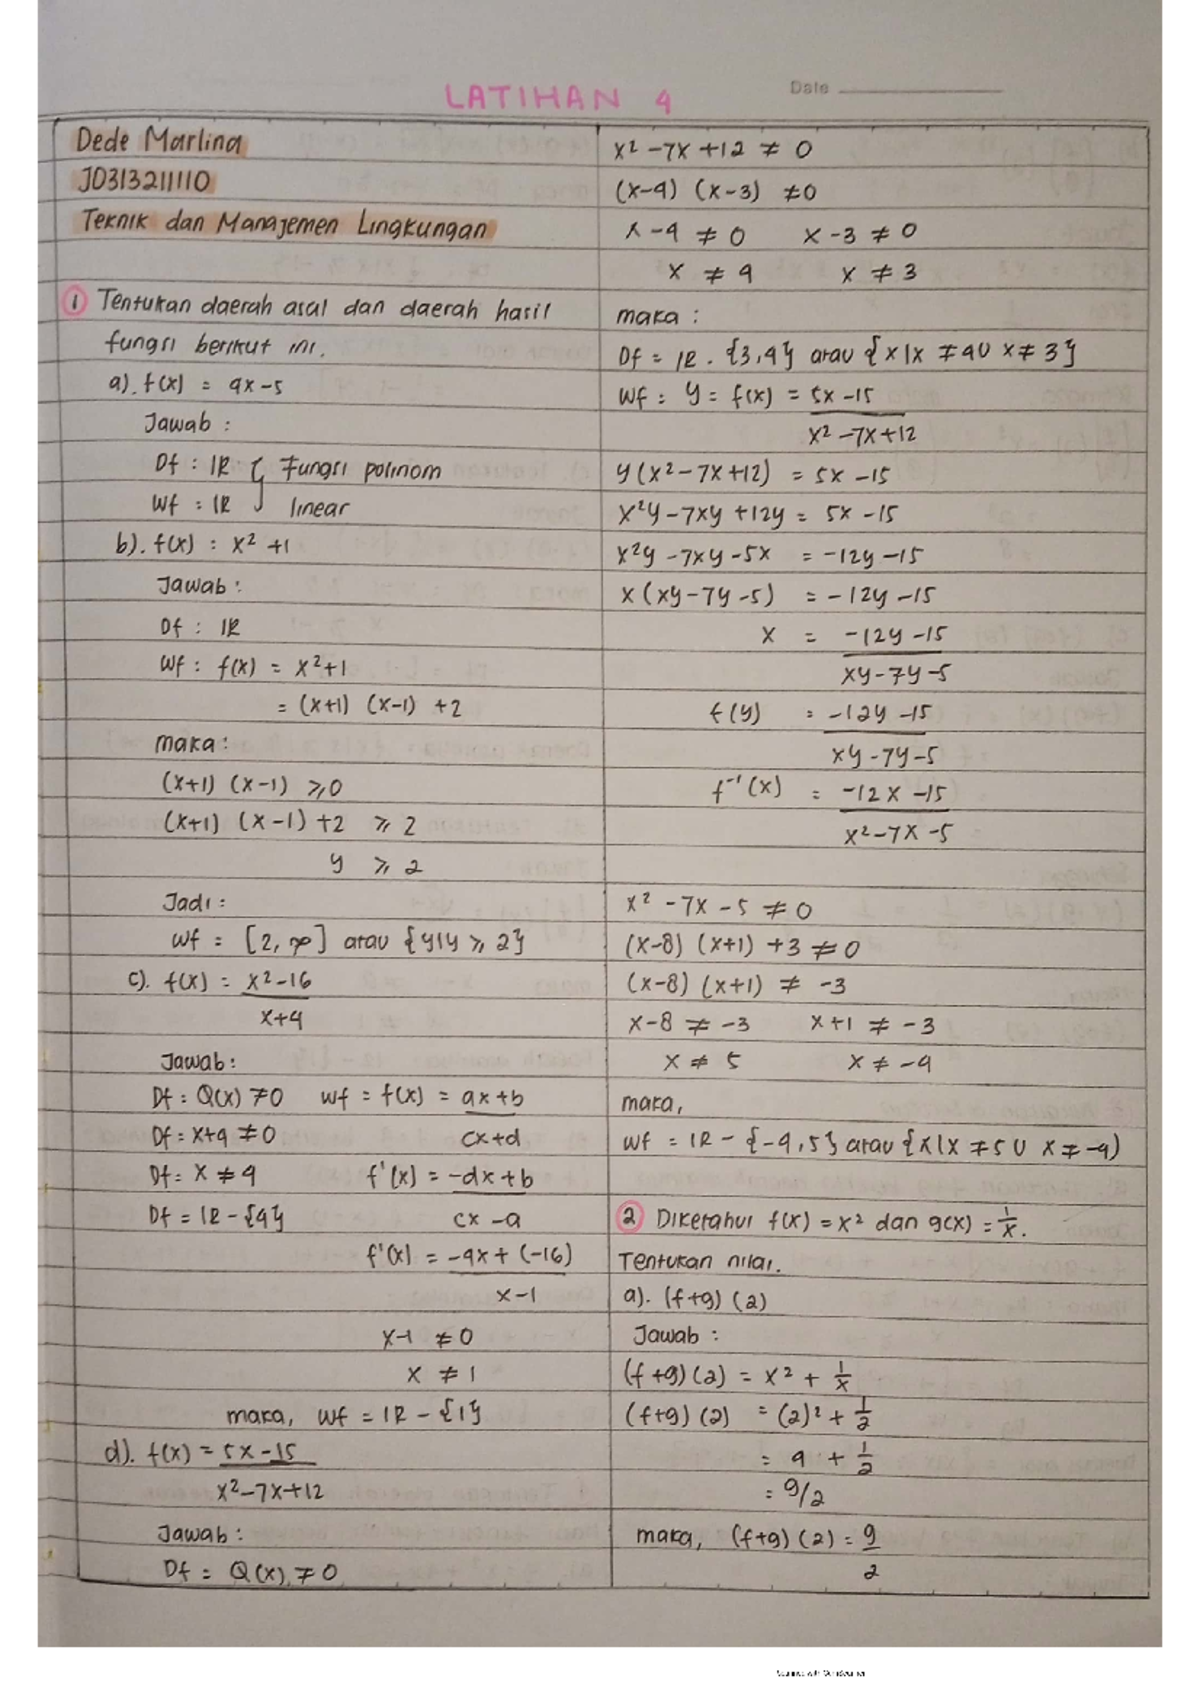 LATIHAN 4
Date
Dede Marlina
J0313211110
Teknik dan Manajemen Lingkungan
① Tentukan daerah asal dan daerah hasil
fungsi berikut ini.
a). f(x) = 4x-5
Jawab :
Df : IR } Fungsi polinom
Wf : IR } linear
b). f(x) : x² +1
Jawab :
Df : IR
Wf : f(x) = x²+1
= (x+1) (x-1) +2
maka :
(x+1) (x-1) ≥ 0
(x+1) (x-1) +2 ≥ 2
y ≥ 2
Jadi :
Wf = [2, ∞] atau {y|y ≥ 2}
c). f(x) = x²-16
x+4
Jawab :
Df : Q(x) ≠ 0 Wf = f(x) = ax+b
Df = x+4 ≠ 0 cx+d
Df = x ≠ 4 f'(x) = -dx+b
Df = IR - {4} cx-a
f'(x) = -4x + (-16)
x-1
x-1 ≠ 0
x ≠ 1
maka, Wf = IR - {1}
d). f(x) = 5x-15
x²-7x+12
Jawab :
Df = Q(x) ≠ 0
x² -7x +12 ≠ 0
(x-4) (x-3) ≠ 0
x-4 ≠ 0 x-3 ≠ 0
x ≠ 4 x ≠ 3
maka :
Df = IR - {3,4} atau {x|x ≠ 4 ∪ x ≠ 3}
Wf : y = f(x) = 5x-15
x²-7x+12
y(x²-7x+12) = 5x-15
x²y-7xy+12y = 5x-15
x²y-7xy-5x = -12y-15
x(xy-7y-5) = -12y-15
x = -12y-15
xy-7y-5
f(y) = -12y-15
xy-7y-5
f⁻¹(x) = -12x-15
x²-7x-5
x² -7x-5 ≠ 0
(x-8) (x+1) +3 ≠ 0
(x-8) (x+1) ≠ -3
x-8 ≠ -3 x+1 ≠ -3
x ≠ 5 x ≠ -4
maka,
Wf = IR - {-4,5} atau {x|x ≠ 5 ∪ x ≠ -4}
② Diketahui f(x) = x² dan g(x) = 1/x.
Tentukan nilai.
a). (f+g) (2)
Jawab :
(f+g) (2) = x² + 1/x
(f+g) (2) = (2)² + 1/2
= 4 + 1/2
= 9/2
maka, (f+g) (2) = 9
2